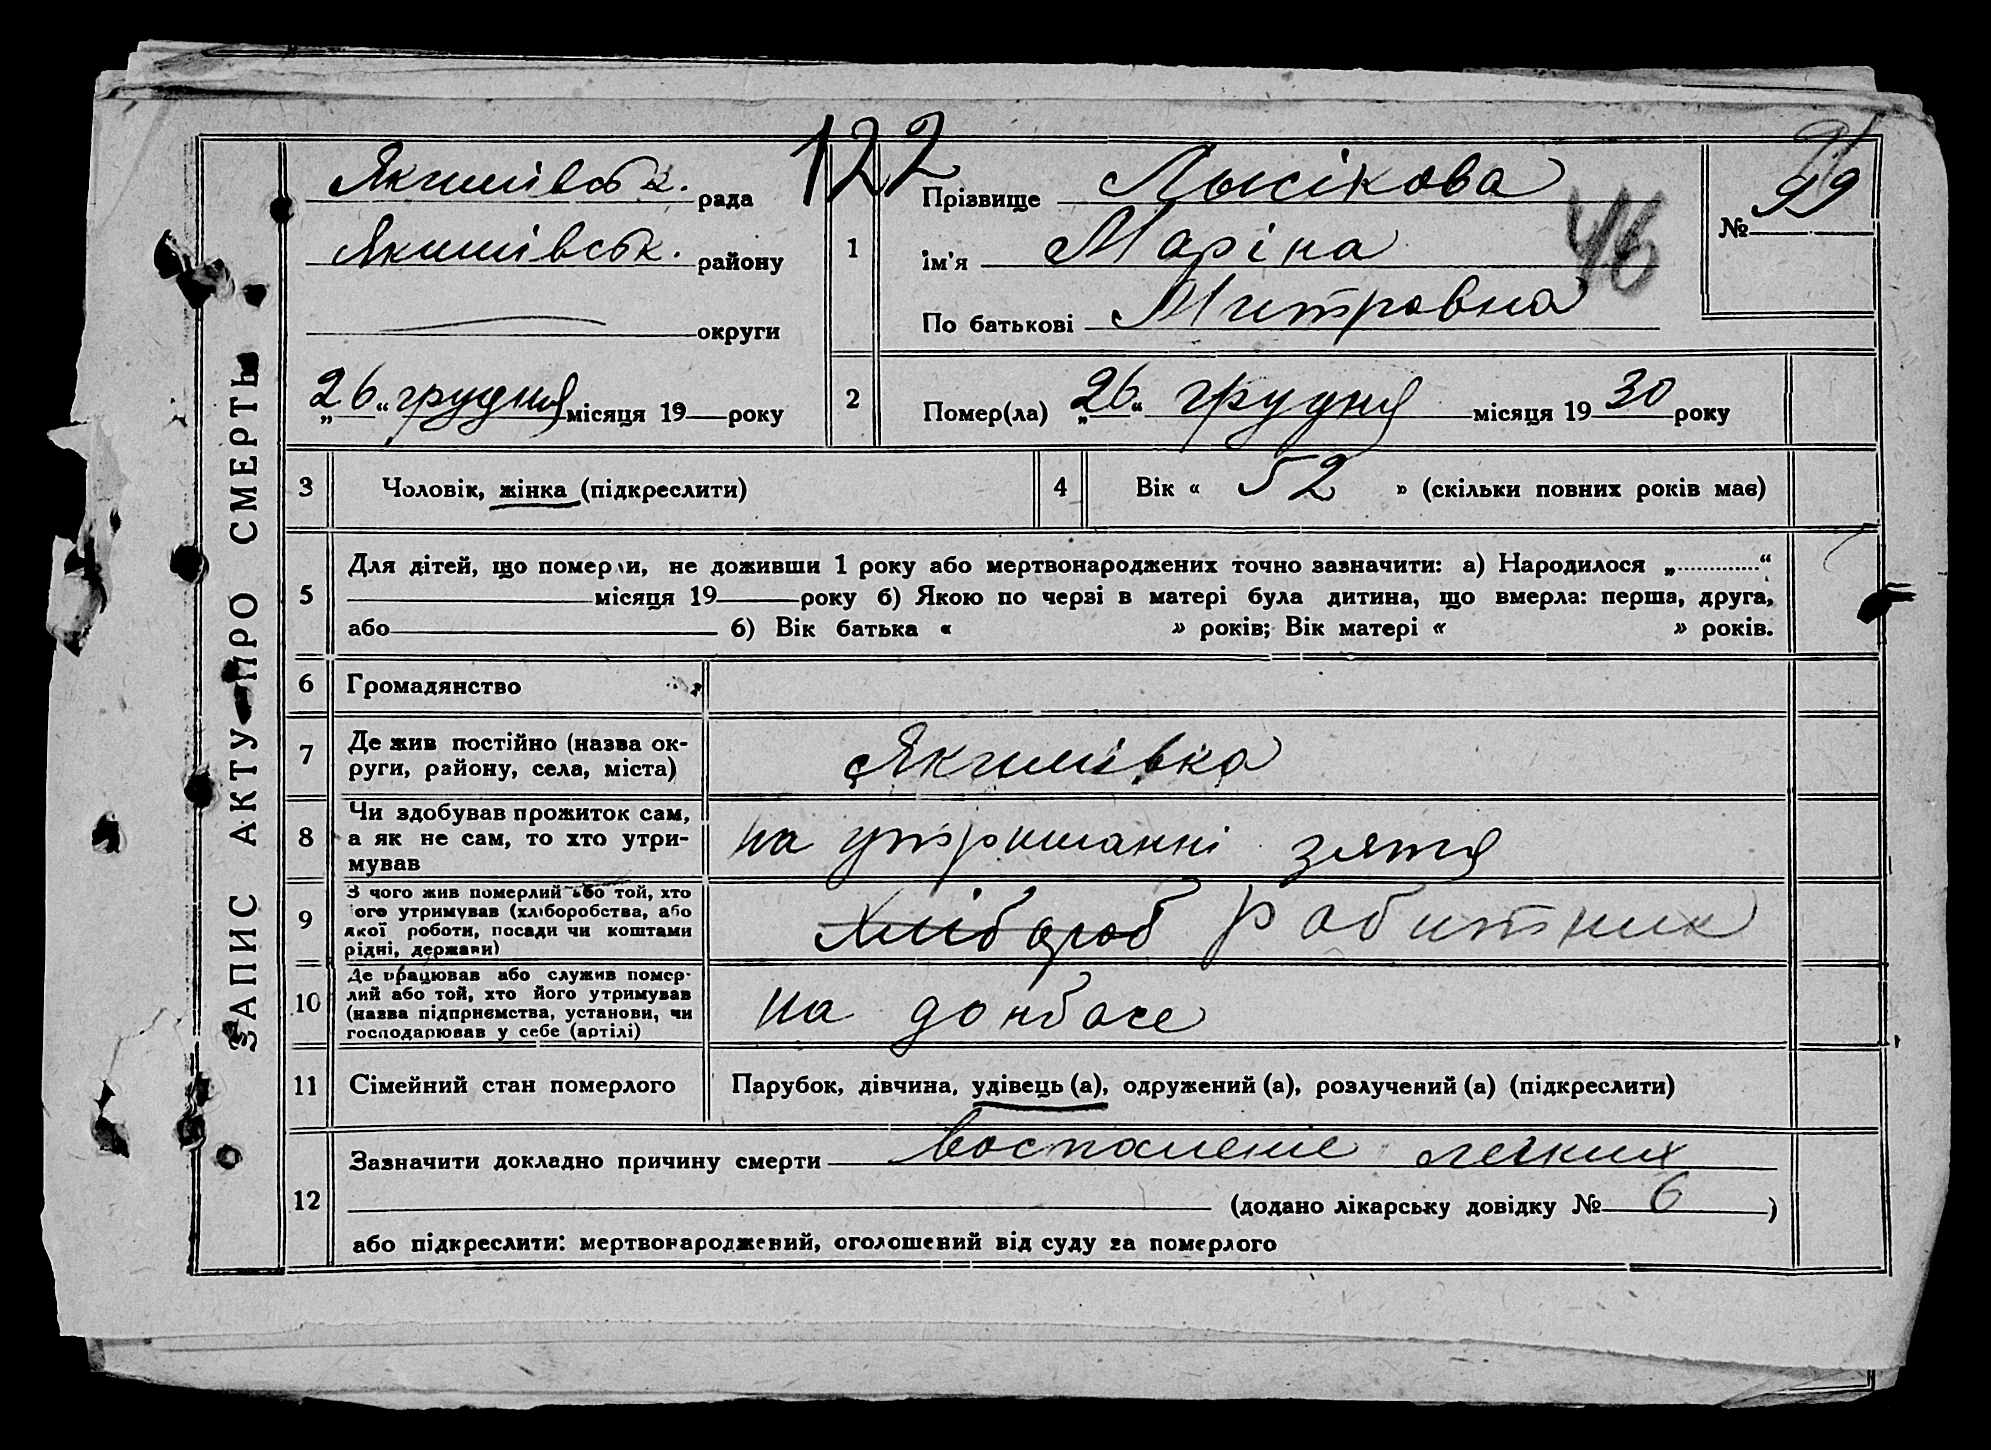 ЗАПИС АКТУ ПРО СМЕРТЬ
122
Якимівськ. рада
Якимівськ. району
округи
„26“ грудня місяця 19 року
1
Прізвище Лысікова
ім'я Маріна
По батькові Митровна
46
№ 99
2
Помер(ла) „26“ грудня місяця 1930 року
3
Чоловік, жінка (підкреслити)
4
Вік « 52 » (скільки повних років має)
5
Для дітей, що померли, не доживши 1 року або мертвонароджених точно зазначити: а) Народилося „ “
місяця 19 року б) Якою по черзі в матері була дитина, що вмерла: перша, друга,
або б) Вік батька « » років; Вік матері « » років.
6
Громадянство
7
Де жив постійно (назва ок-
руги, району, села, міста)
Якимівка
8
Чи здобував прожиток сам,
а як не сам, то хто утри-
мував
на утриманні зятя
9
З чого жив померлий або той, хто
ого утримував (хліборобства, або
якої роботи, посади чи коштами
рідні, держави)
Хлібороб Робитник
10
Де працював або служив помер-
лий або той, хто його утримував
(назва підприємства, установи, чи
господарював у себе (артілі)
на донбасе
11
Сімейний стан померлого
Парубок, дівчина, удівець (а), одружений (а), розлучений (а) (підкреслити)
12
Зазначити докладно причину смерти воспаление легких
(додано лікарську довідку № 6 )
або підкреслити: мертвонароджений, оголошений від суду за померлого